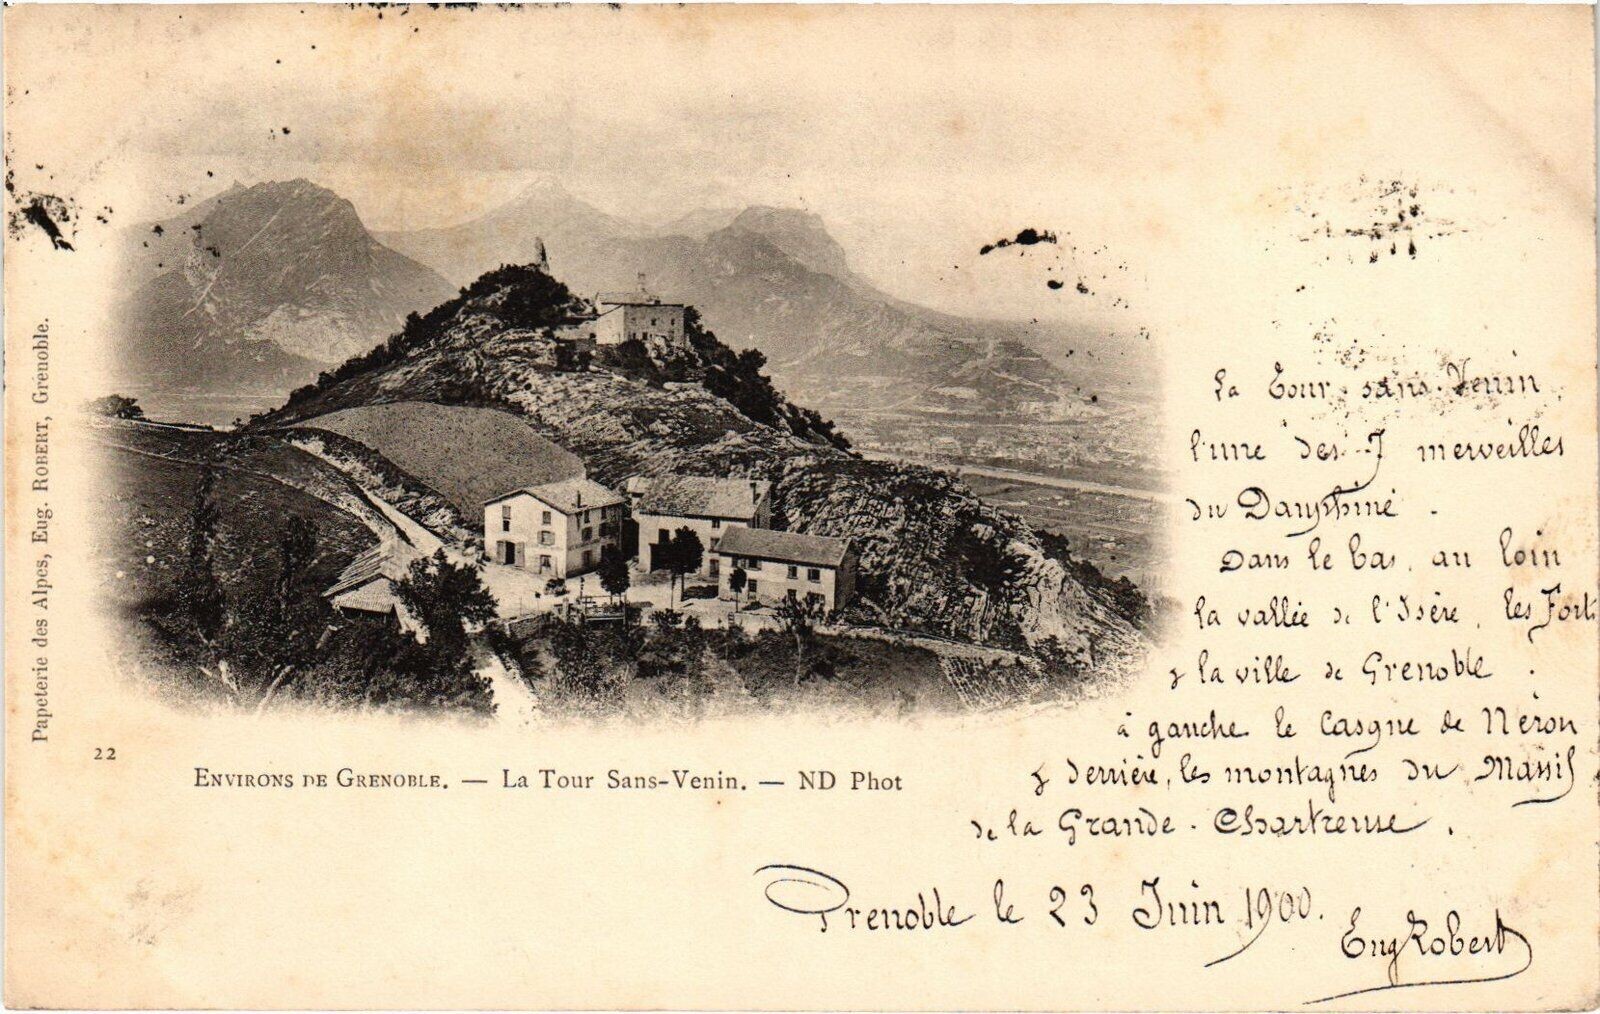 Papeterie des Alpes, Eug. ROBERT, Grenoble.
22
ENVIRONS DE GRENOBLE. — La Tour Sans-Venin. — ND Phot
La Tour sans-Venin
l'une des 7 merveilles
du Dauphiné.
Dans le bas, au loin
la vallée de l'Isère, les Forts
& la ville de Grenoble.
à gauche le Casque de Néron
& derrière, les montagnes du Massif
de la Grande-Chartreuse.
Grenoble le 23 Juin 1900.
Eug Robert